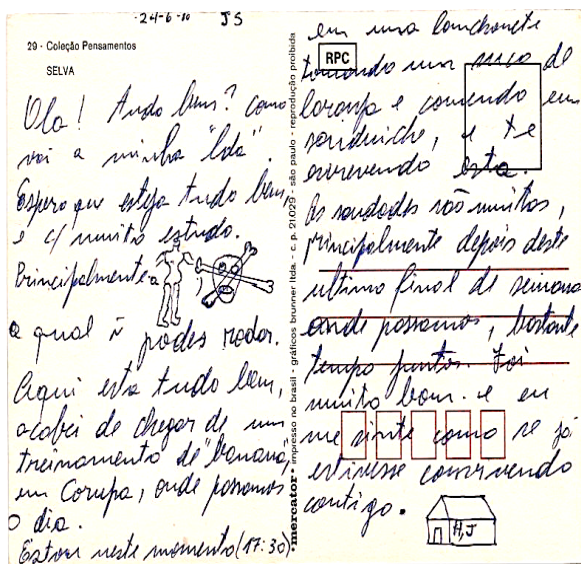 -24-6-80 JS
29 - Coleção Pensamentos
SELVA
Ola! Tudo bem? como
vai a minha "lda".
Espero que esteja tudo bem,
e c/ muito estudo.
Principalmente a
a qual ñ podes rodar.
Aqui esta tudo bem,
acabei de chegar de um
treinamento de "banana",
em Corupa, onde passamos
o dia.
Estou neste momento (17:30)
mercator - impresso no brasil - gráficos brunner ltda. - c.p. 21.029 - são paulo - reprodução proibida
RPC
em uma lanchonete
tomando um suco de
laranja e comendo um
sanduiche, e te
escrevendo esta.
As saudades são muitas,
principalmente depois deste
ultimo final de semana
onde passamos, bastante
tempo juntos. Foi
muito bom. e eu
me sinto como se já
estivesse convivendo
contigo.
H,J